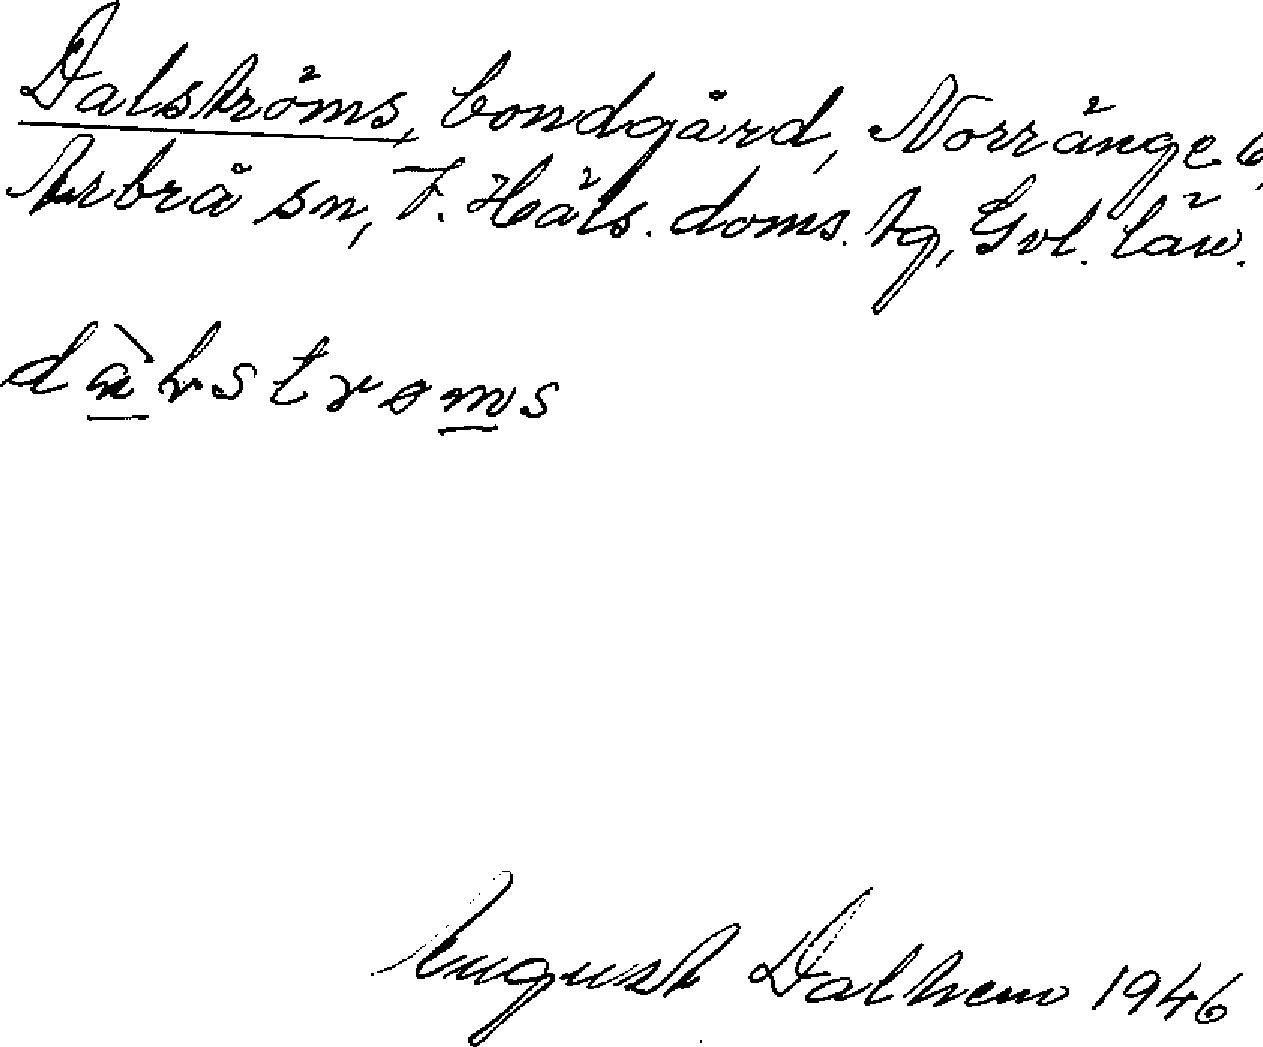 Dalströms, bondgård, Norränge 6,
Arbrå sn, V. Häls. doms. tg, Gvl. län.
dàlstroms
August Dalhem 1946